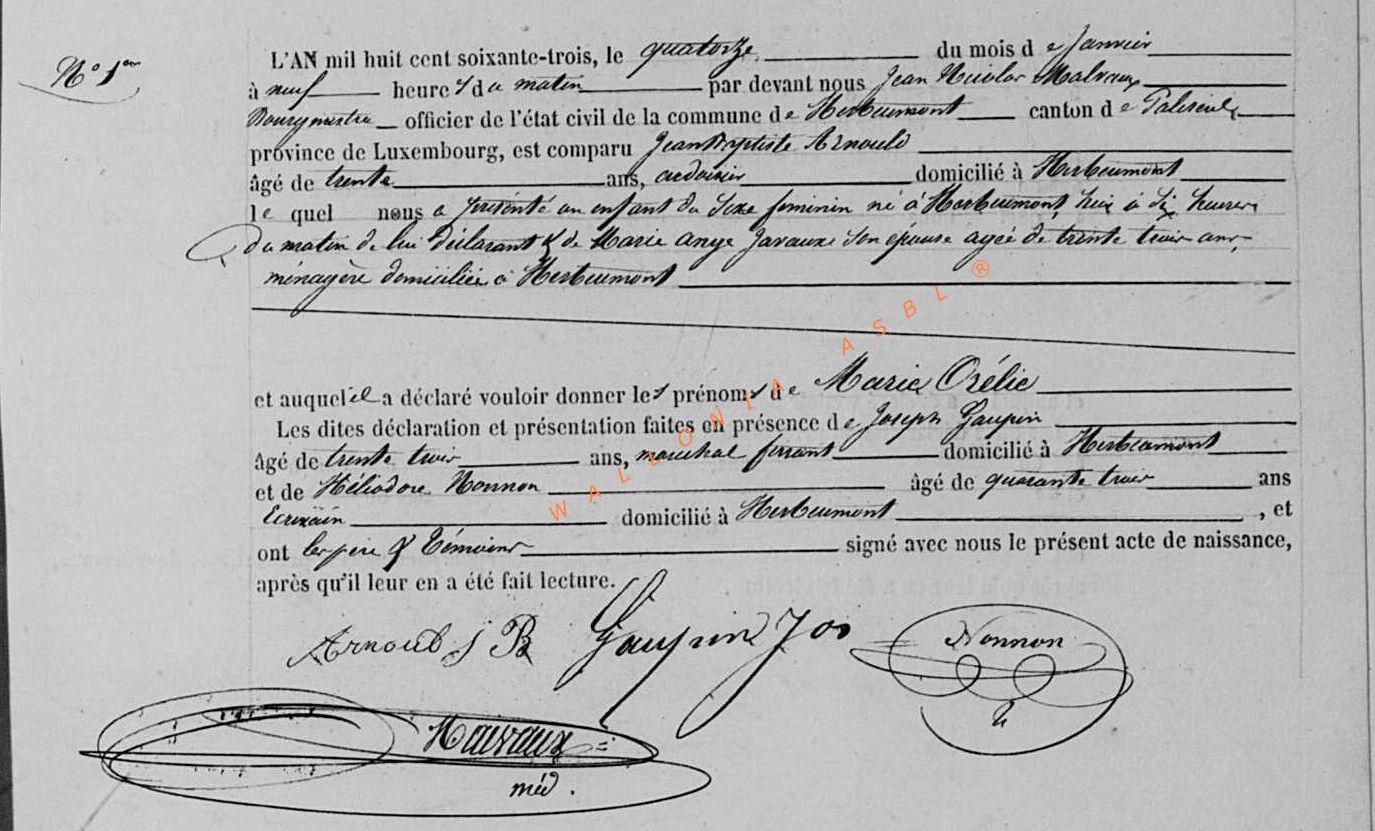 N° 1er
L'AN mil huit cent soixante-trois, le quatorze du mois de Janvier
à neuf heures du matin par devant nous Jean Nicolas Malvaux
Bourgmestre officier de l'état civil de la commune de Herbeumont canton de Paliseul
province de Luxembourg, est comparu Jean Baptiste Arnould
âgé de trente ans, ardoisier domicilié à Herbeumont
le quel nous a présenté un enfant du sexe feminin né à Herbeumont, hier à six heures
du matin de lui déclarant & de Marie Ange Javaux son épouse agée de trente trois ans,
ménagère domiciliée à Herbeumont
et auquel il a déclaré vouloir donner les prénoms de Marie Orélie
Les dites déclaration et présentation faites en présence de Joseph Gaupin
âgé de trente trois ans, maréchal ferrant domicilié à Herbeumont
et de Héliodore Nonnon âgé de quarante trois ans
Ecrivain domicilié à Herbeumont, et
ont les père & témoins signé avec nous le présent acte de naissance,
après qu'il leur en a été fait lecture.
Arnould J B Gaupin Jos Nonnon
h
Malvaux
méd.
WALLONIA ASBL ®